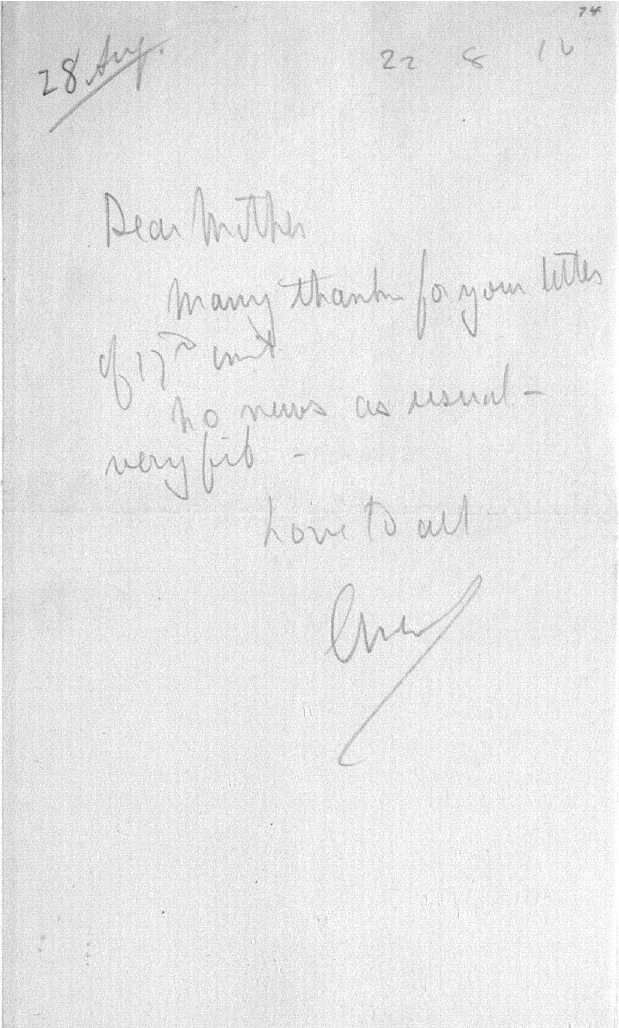 74
28 Aug.
22 8 16
Dear Mother
Many thanks for your letter
of 17th inst
No news as usual –
very fit –
Love to all